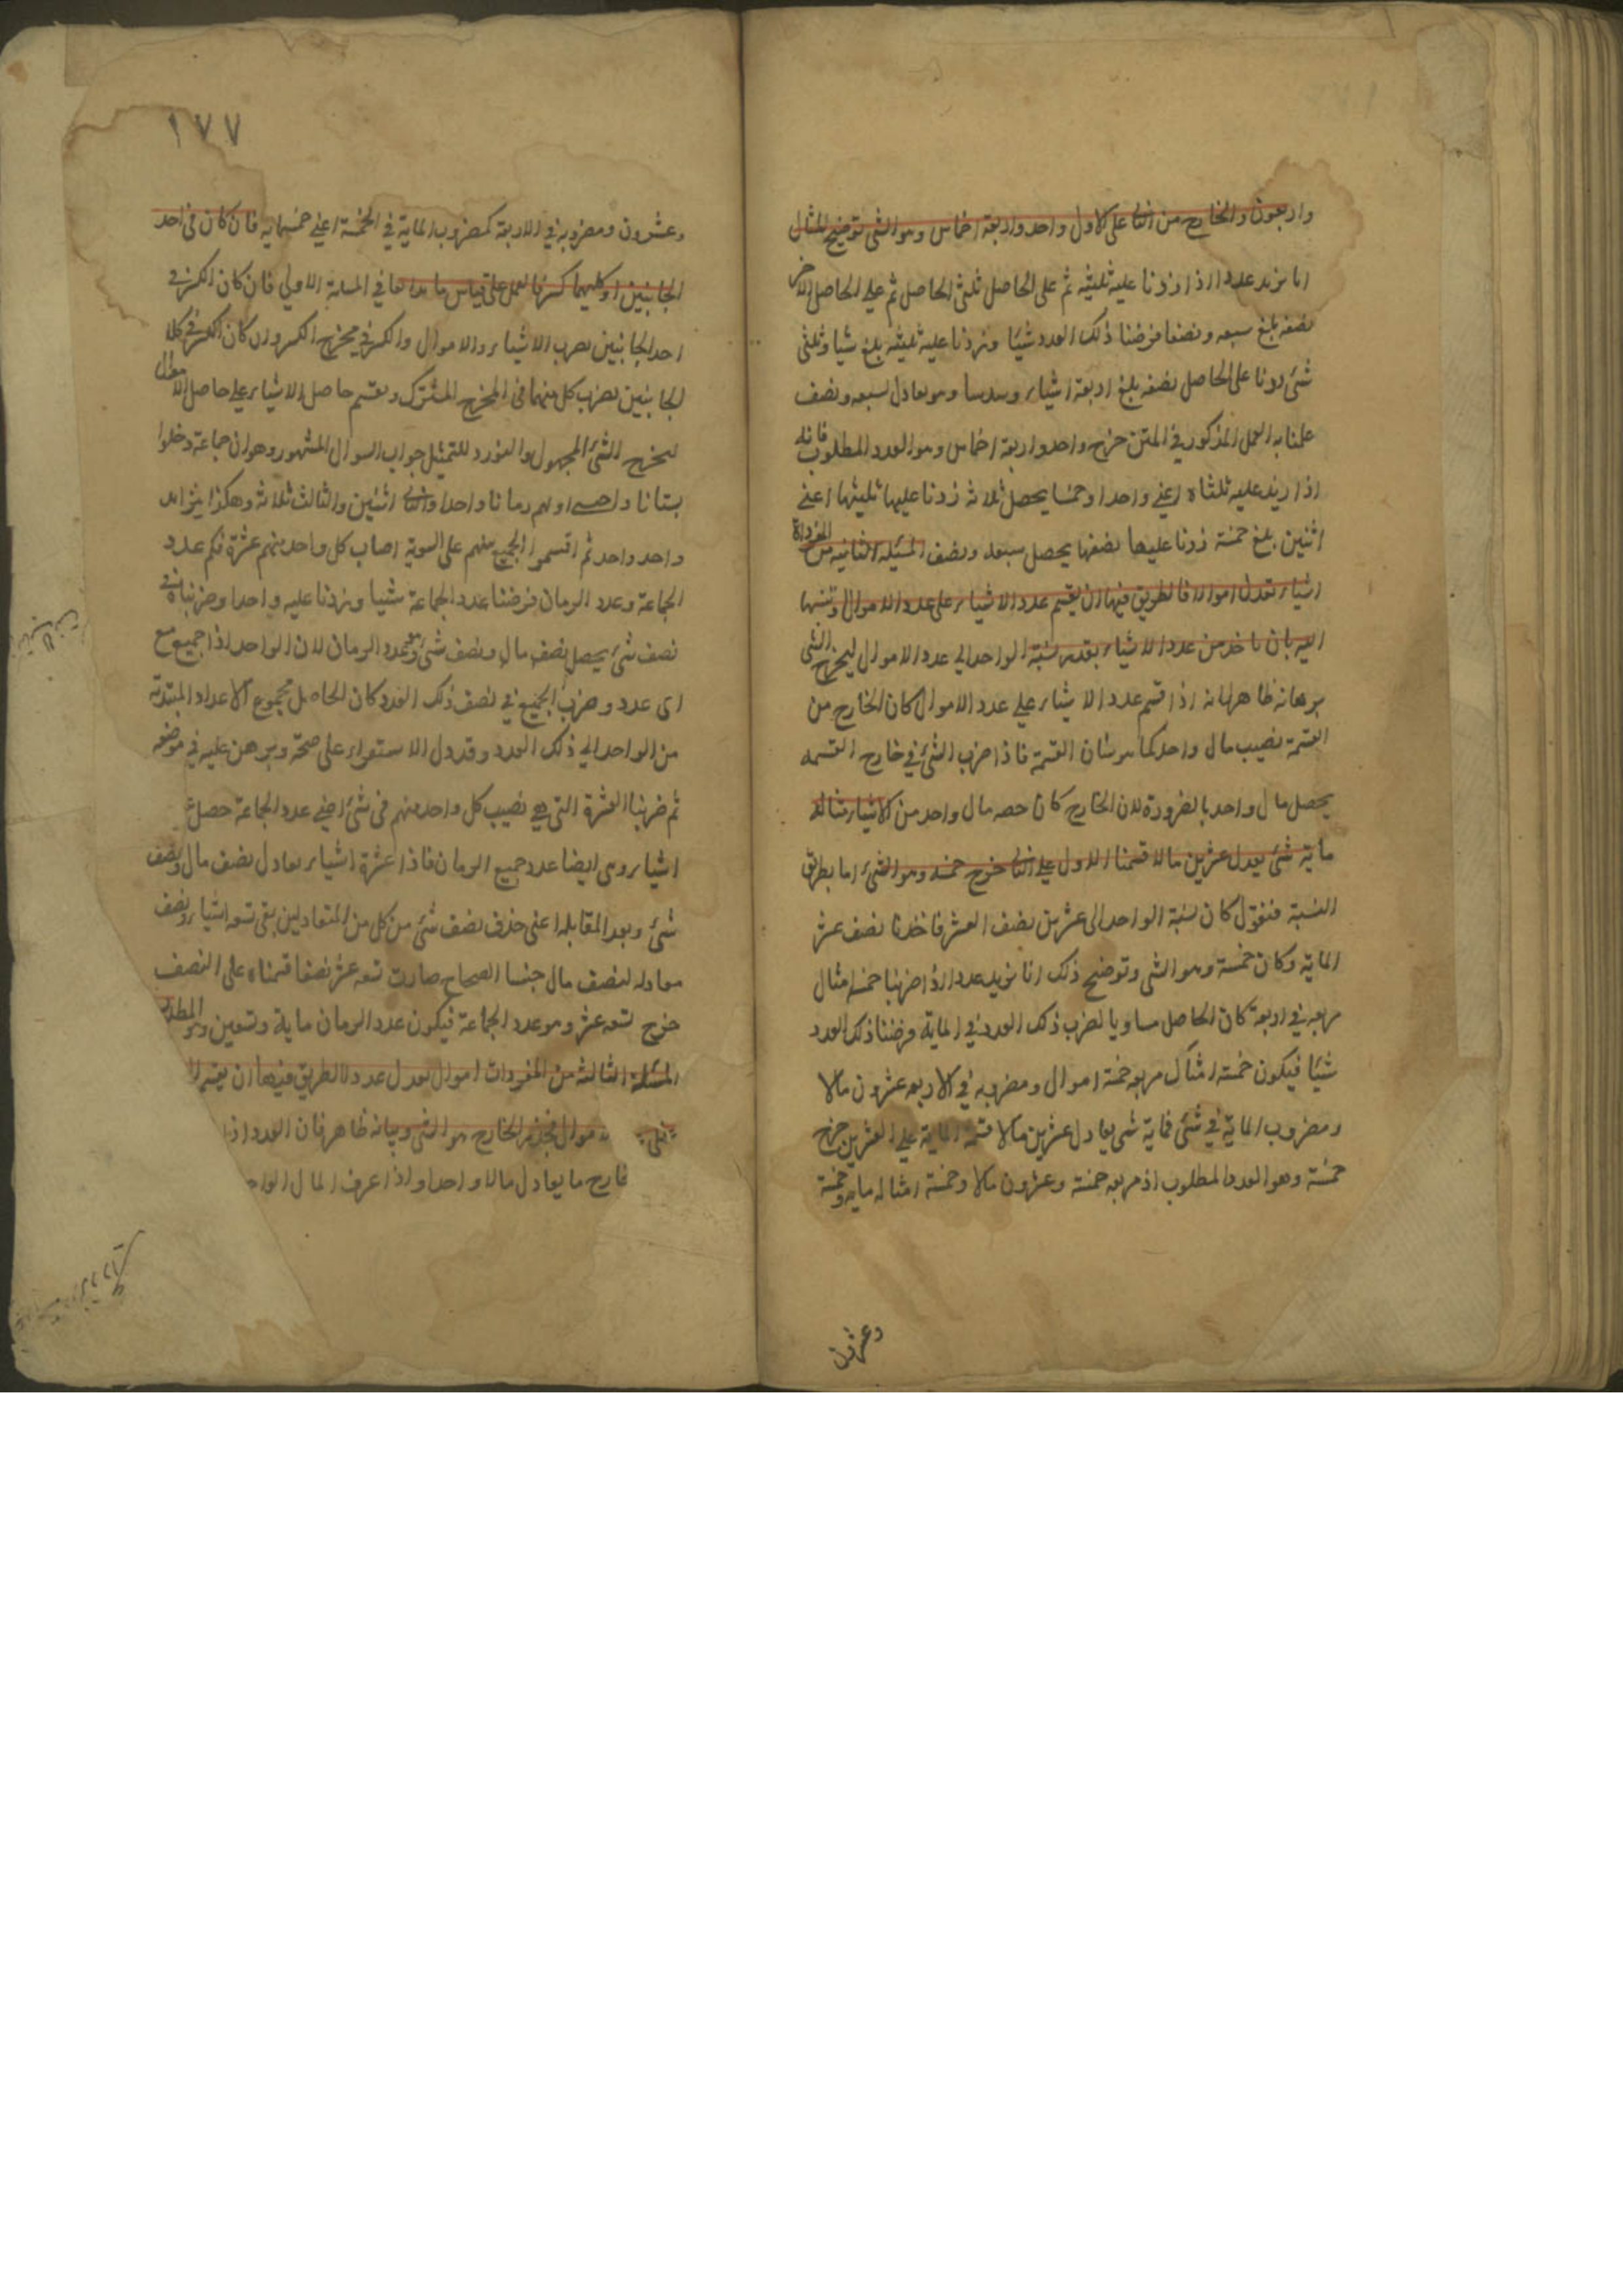 واربعون والخارج من الثانى على الاول واحد واربعة اخماس وهو الشى توضيح المثال
انا نريد عددا اذا زدنا عليه ثلثيه ثم على الحاصل ثلثى الحاصل ثم على الحاصل الاخر
نصفه بلغ سبعه ونصفا فرضنا ذلك العدد شيئا وزدنا عليه ثلثيه بلغ شيا وثلثى
شئ زدنا على الحاصل نصفه بلغ اربعة اشياء وسدسا وهو يعادل سبعه ونصف
علمنا به العمل المذكور فى المتن خرج واحد واربعة اخماس وهو العدد المطلوب فانه
اذا زيد عليه ثلثاه اعنى واحدا وخمسا يحصل ثلاثة زدنا عليها ثلثيها اعنى
اثنين بلغ خمسة زدنا عليها نصفها يحصل سبعه ونصف المسئلة الثانيه من المفردات
اشياء تعدل اموالا فالطريق فيها ان يقسم عدد الاشياء على عدد الاموال وتنسبها
اليه بان ناخذ من عدد الاشياء بقدر نسبة الواحد الى عدد الاموال ليخرج الشى
برهانه ظاهر لانه اذا قسم عدد الاشياء على عدد الاموال كان الخارج من
القسمة نصيب مال واحد كما هو شان القسمة فاذا ضرب الشئ فى خارج القسمه
يحصل مال واحد بالضرورة لان الخارج كان حصه مال واحد من الاشياء مثاله
ماية شئ يعدل عشرين مالا قسمنا الاول على الثانى خرج خمسه وهو الشئ اما بطريق
النسبة فنقول كان نسبة الواحد الى عشرين نصف العشر فاخذنا نصف عشر
الماية وكان خمسة وهو الشى وتوضيح ذلك انا نريد عددا اذا ضربنا خمسة امثال
مربعه فى اربعة كان الحاصل مساويا لضرب ذلك العدد فى الماية فرضنا ذلك العدد
شيئا فيكون خمسة امثال مربعه خمسة اموال ومضروبه فى الاربعه عشرون مالا
ومضروب الماية فى شئ فماية شى يعادل عشرين مالا قسمنا الماية على العشرين خرج
خمسة وهو العدد المطلوب اذ مربعه خمسة وعشرون مالا وخمسة امثاله مايه وخمسة
وعشرون
١٧٧
وعشرون ومضروبه فى الاربعة كمضروب الماية فى الخمسة اعنى خمسمايه فان كان فى احد
الجانبين او كليهما كسر فالعمل على قياس ما فى المسئلة الاولى فان كان الكسر فى
احد الجانبين نضرب الاشياء والاموال والكسر فى مخرج الكسر وان كان الكسر فى كلا
الجانبين نضرب كل منهما فى المخرج المشترك ونقسم حاصل الاشياء على حاصل الاموال
ليخرج الشئ المجهول ولنورد للتمثيل جواب السوال المشهور وهو ان جماعة دخلوا
بستانا واخذ اولهم رمانا واحدا والثانى اثنين والثالث ثلاثة وهكذا يتزايد
واحد واحد ثم اقسموا الجميع بينهم على السوية اصاب كل واحد منهم عشرة فكم عدد
الجماعة وعدد الرمان فرضنا عدد الجماعة شيا وزدنا عليه واحدا وضربناه فى
نصف شئ يحصل نصف مال ونصف شئ وهو عدد الرمان لان الواحد اذا جمع مع
اى عدد وضرب الجميع فى نصف ذلك العدد كان الحاصل مجموع الاعداد المبتدئة
من الواحد الى ذلك العدد وقد دل الاستقراء على صحته وبرهن عليه فى موضعه
ثم ضربنا العشرة التى هى نصيب كل واحد منهم فى شئ اعنى عدد الجماعة حصل
اشياء وهى ايضا عدد جميع الرمان فاذا عشرة اشياء يعادل نصف مال ونصف
شئ وبعد المقابله اعنى حذف نصف شئ من كل من المتعادلين بقى تسعه اشياء ونصف
معادله لنصف مال جنسا الصحاح صارت تسعه عشر نصفا قسمناه على النصف
خرج تسعه عشر وهو عدد الجماعة فيكون عدد الرمان ماية وتسعين وهو المطلوب
المسئلة الثالثة من المفردات اموال تعدل عددا فالطريق فيها ان يقسم
على الاموال فجذر الخارج هو الشى وبيانه ظاهر فان العدد اذا
خارج ما يعادل مالا واحدا واذا عرف المال الواحد